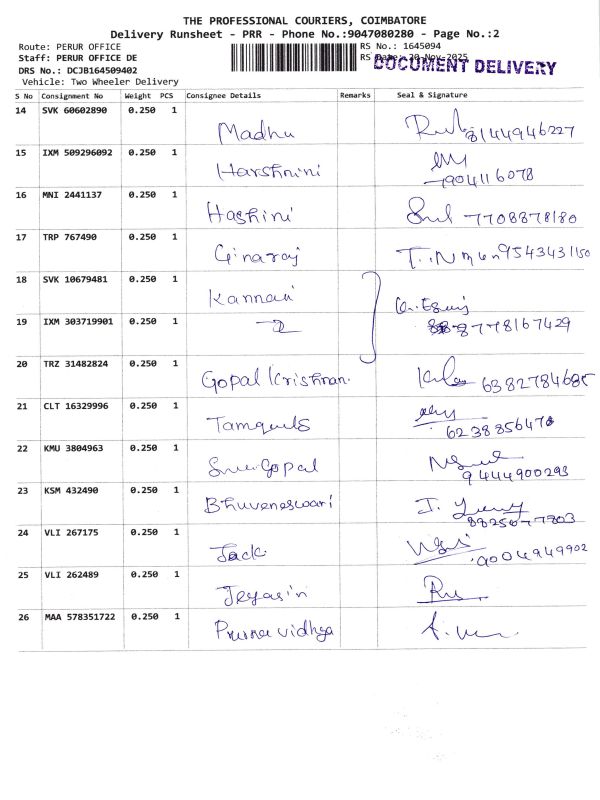 THE PROFESSIONAL COURIERS, COIMBATORE
Delivery Runsheet - PRR - Phone No.:9047080280 - Page No.:2
Route: PERUR OFFICE RS No.: 1645094
Staff: PERUR OFFICE DE RS Date: 20-Nov-2025
DOCUMENT DELIVERY
DRS No.: DCJB164509402
Vehicle: Two Wheeler Delivery
S No Consignment No Weight PCS Consignee Details Remarks Seal & Signature
14 SVK 60602890 0.250 1 Madhu 8144946227
15 IXM 509296092 0.250 1 Harshnini 7904116078
16 MNI 2441137 0.250 1 Hashini 7708878180
17 TRP 767490 0.250 1 Ginaraj 9543431150
18 SVK 10679481 0.250 1 Kannan
19 IXM 303719901 0.250 1 8778167429
20 TRZ 31482824 0.250 1 Gopal Krishnan 6382784685
21 CLT 16329996 0.250 1 6238856470
22 KMU 3804963 0.250 1 9444900293
23 KSM 432490 0.250 1 Bhuveneswari J.
24 VLI 267175 0.250 1 Jack 9004949902
25 VLI 262489 0.250 1 Jeyasiri
26 MAA 578351722 0.250 1